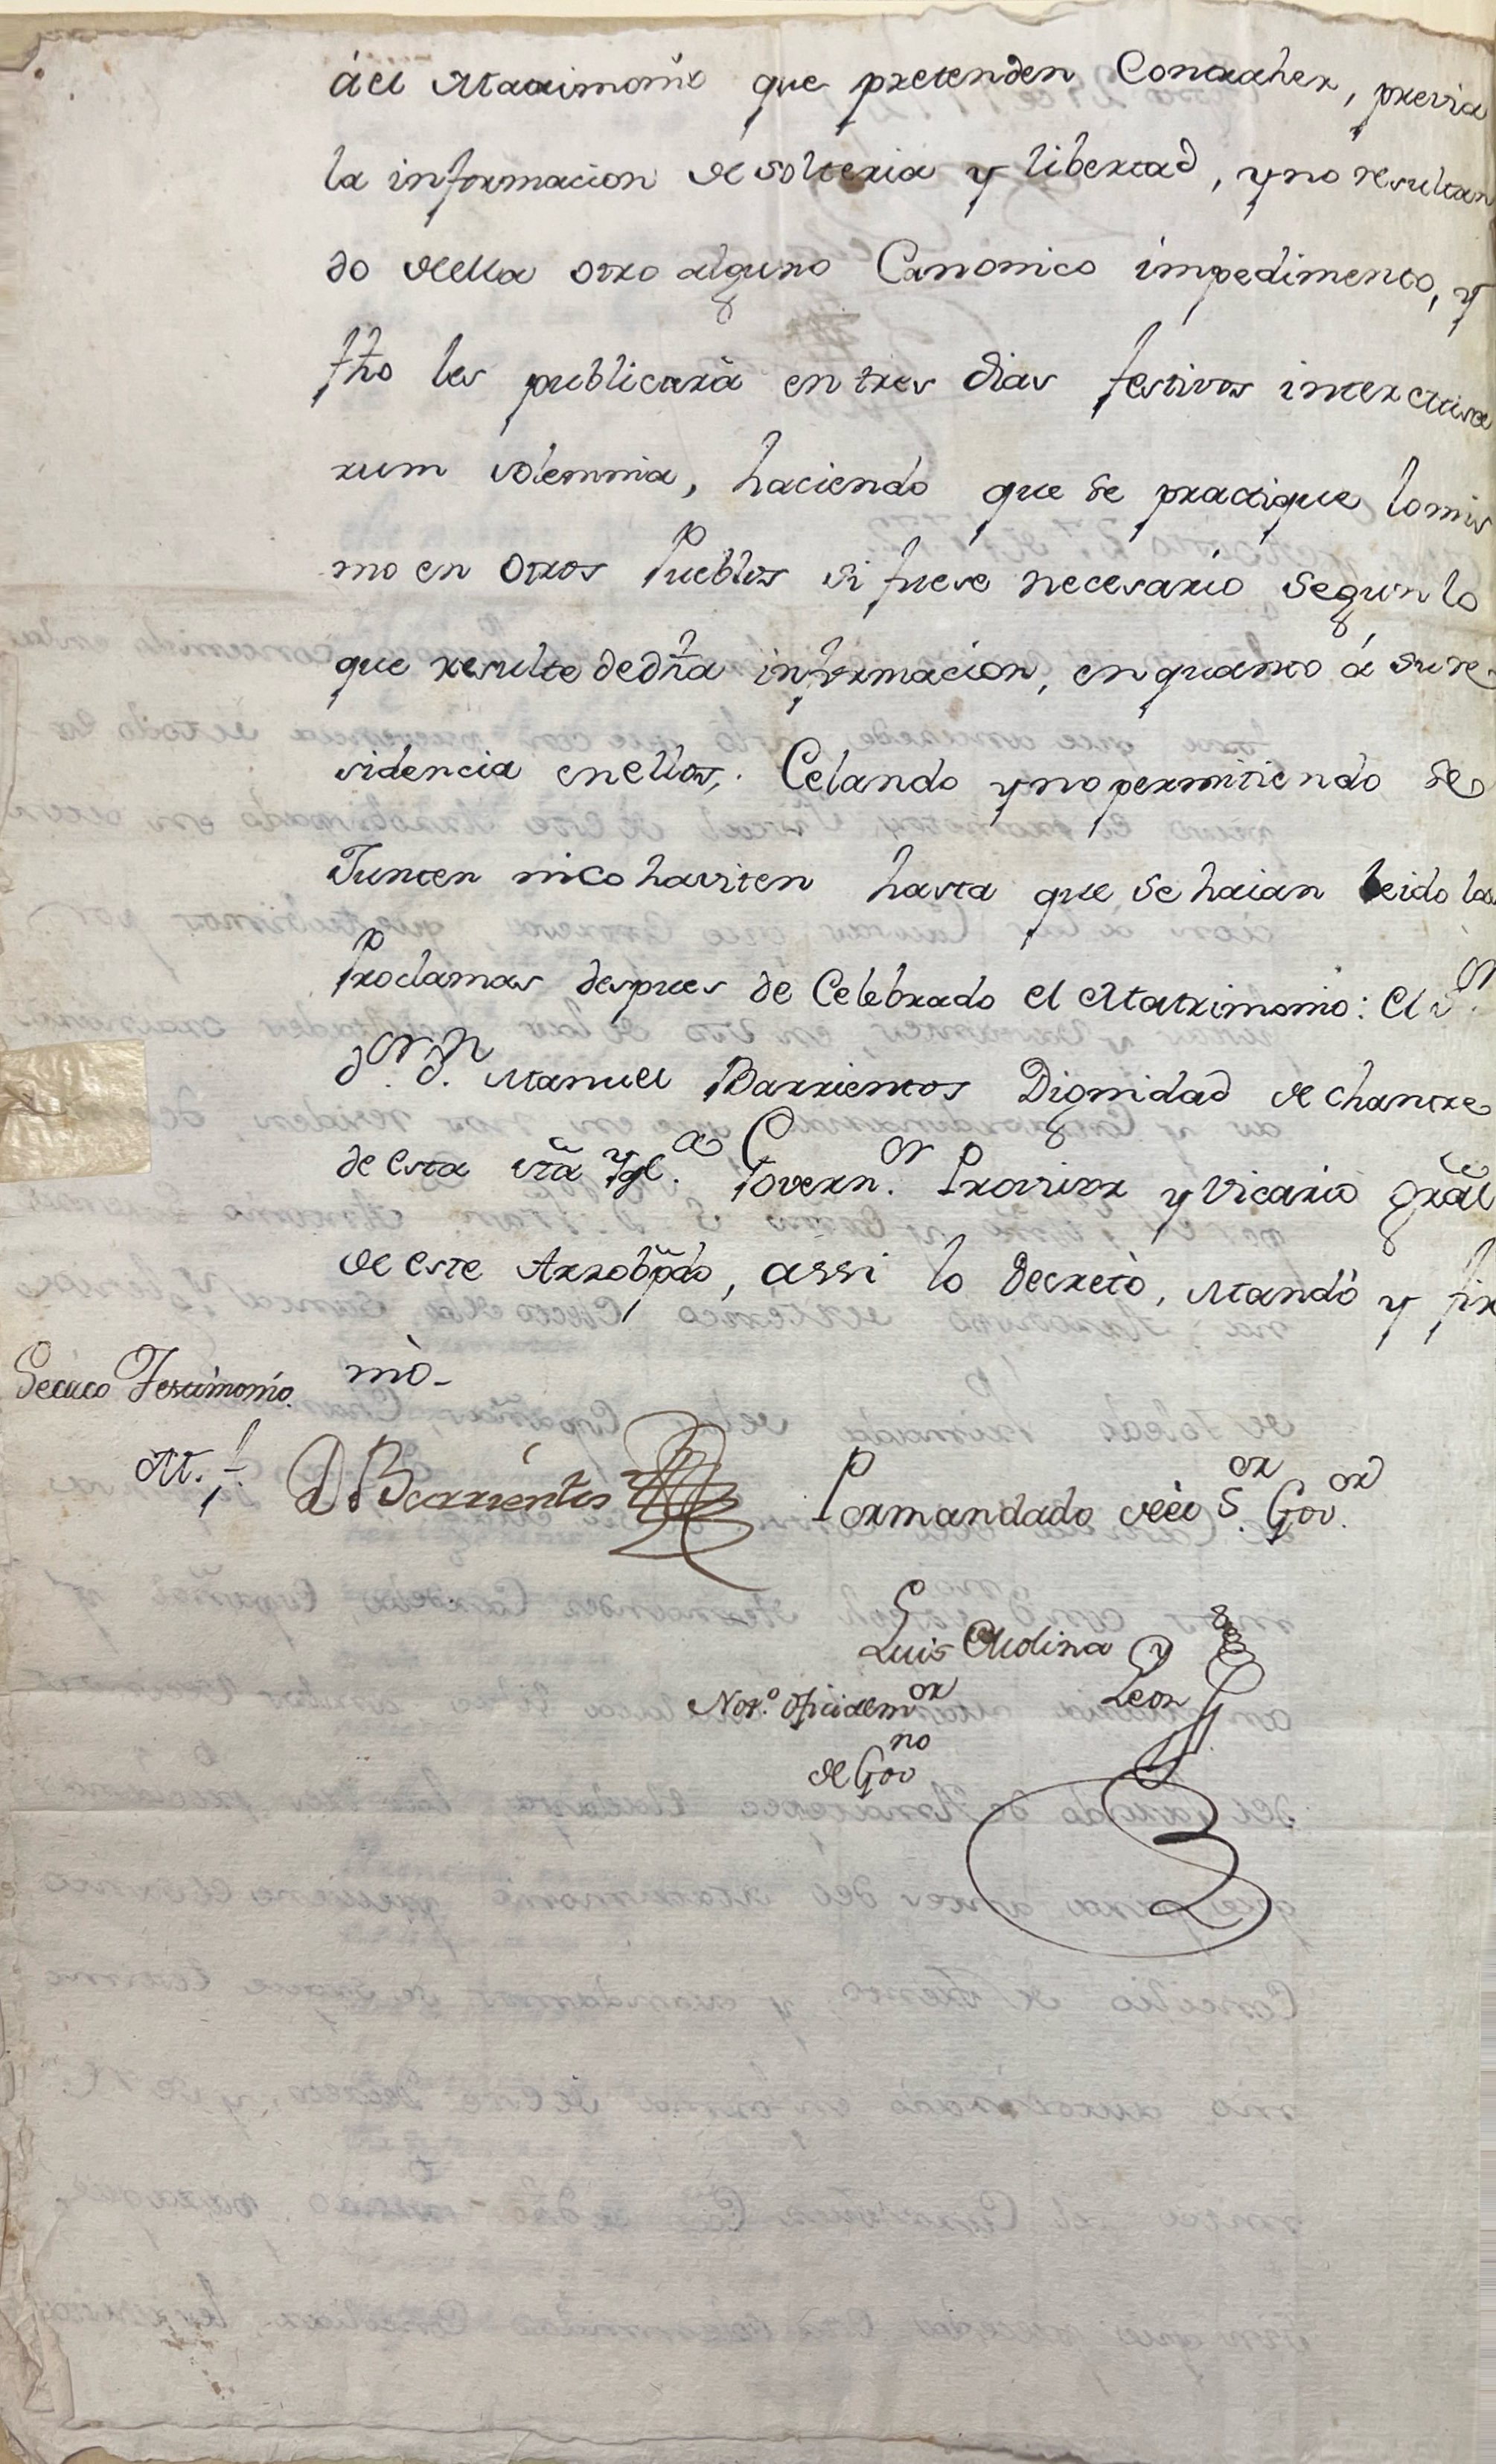 áel Matrimonio que pretenden Contraher, previa
la informacion de solteria y libertad, y no resultan
do della otro alguno Canonico impedimento, y
fho les publicarà en tres dias festivos inter Missa
rum solemnia, haciendo que se practique lo mis
mo en otros Pueblos si fuese necesario segun lo
que resulte de dha informacion, en quanto â su re
sidencia en ellos,. Celando y no permitiendo se
Junten ni cohaviten hasta que se haian leido las
Proclamas despues de Celebrado el Matrimonio: el S.or
D.or D.n Manuel Barrientos Dignidad de Chantre
de esta Sta Ygl.a Govern.or Provisor y Vicario Gral
de este Arzobpdo, assi lo decretò, Mandò y fir
mò-
Secuco Testimonio.
M. f.
D.r Barrientos
Por mandado del S.or Gov.or
Luis Molina y
Leon
Not.o Ofici
de Gov.no